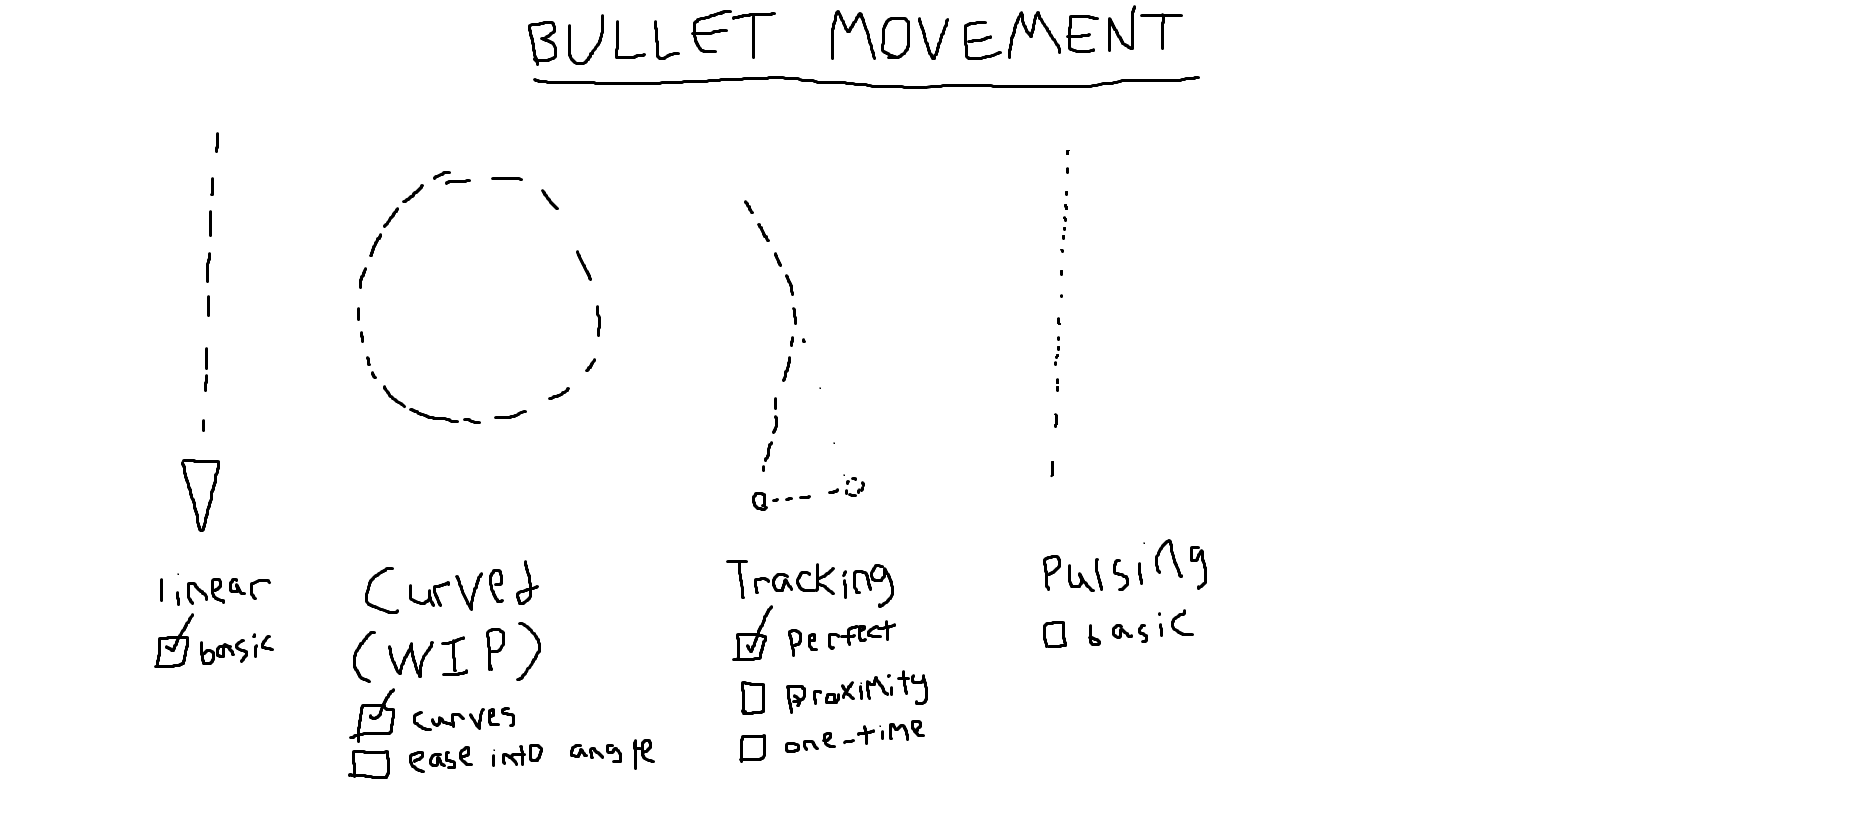 BULLET MOVEMENT
linear
basic
Curved
(WIP)
curves
ease into angle
Tracking
perfect
proximity
one-time
Pulsing
basic